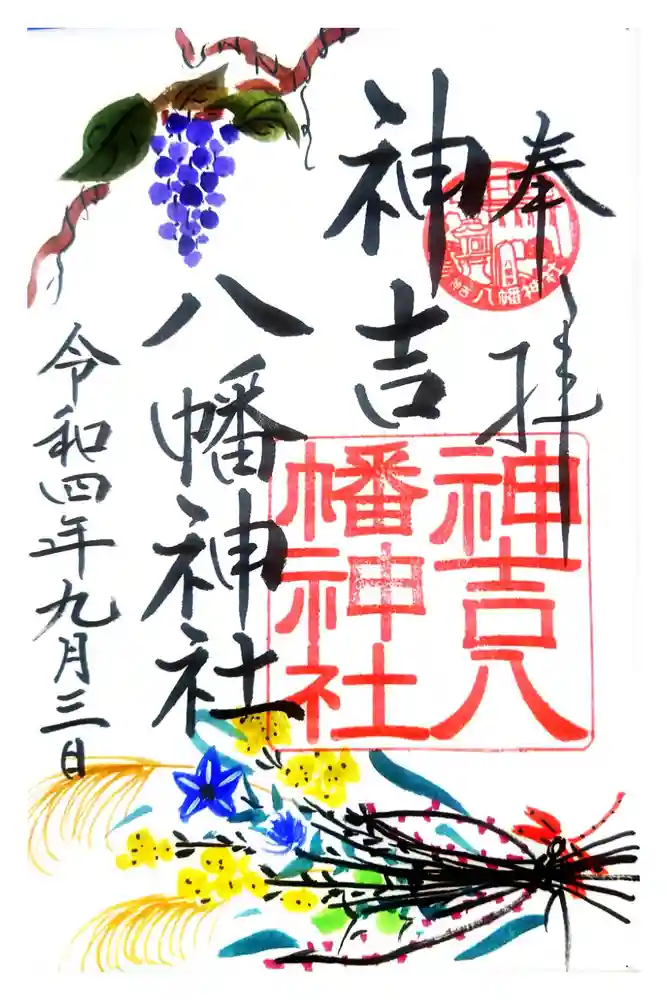 奉拝
神吉
八幡神社
令和四年九月三日
神吉八
幡神社
神吉八幡神社